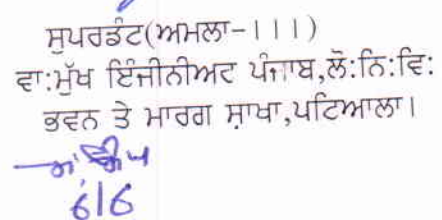 ਸੁਪਰਡੰਟ(ਅਮਲਾ-।।।)
ਵਾ:ਮੁੱਖ ਇੰਜੀਨੀਅਰ ਪੰਜਾਬ,ਲੋ:ਨਿ:ਵਿ:
ਭਵਨ ਤੇ ਮਾਰਗ ਸ਼ਾਖਾ,ਪਟਿਆਲਾ।
6/6